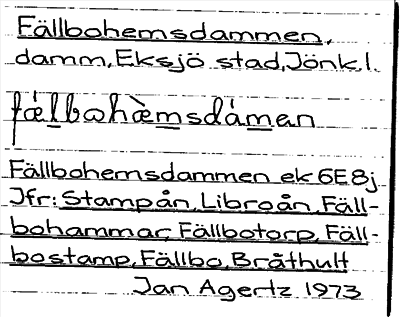 Fällbohemsdammen,
damm, Eksjö stad, Jönk. l.
fälbohæ̀msdámen
Fällbohemsdammen ek 6E8j
Jfr: Stampån, Libroån, Fäll-
bohammar, Fällbotorp, Fäll-
bostamp, Fällbo, Bråthult
Jan Agertz 1973